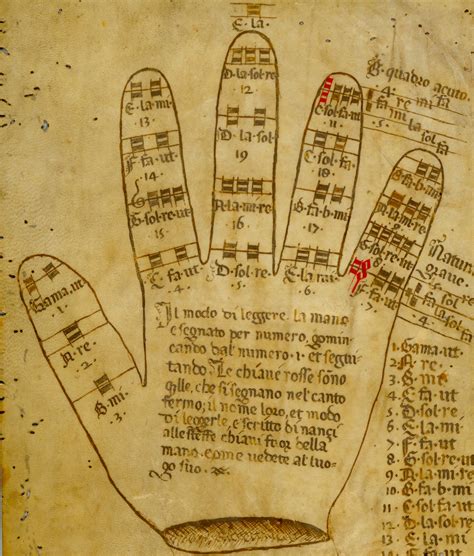 E · la ·
D · la · sol · re ·
12 ·
B · quadro acuto.
E · la · mi ·
13 ·
C sol · fa · ut
11
re mi fa
D · la · sol
19
F · fa · ut
14 ·
C · sol · fa ·
18 ·
B · fa · b · mi ·
G · sol · re · ut
15
A · la · mi · re
16 ·
B · fa · b · mi
A · la · mi · re ·
G · sol · re · ut
C · fa · ut ·
4 ·
D · sol · re ·
5 ·
6 ·
F · fa · ut ·
7 ·
Natura
grave
sol
fa
Gama · ut ·
1 ·
A · re
2 ·
B · mi ·
3 ·
Il modo di leggere la mano
e segnato per numero, gomin
cando dal numero · 1 · et segui
tando. Le chiave rosse sono
qlle, che si segnano nel canto
fermo; il nome loro, et modo
di leggerle, e scritto di nanci
alle stesse chiavi fuor della
mano. come vedete al luo
go suo.
1 · Gama · ut
2 · A · re
3 · B · mi
4 · C · fa · ut
5 · D · sol · re
6 · E · la · mi
7 · F · fa · ut
8 · G · sol · re · ut
9 · A · la · mi · re
10 · B · fa · b · mi
11 · C · sol · fa · ut
12 · D · la · sol · re
13 · E · la · mi
14 · F · fa · ut
15 · G · sol · re · ut
16 · A · la · mi · re